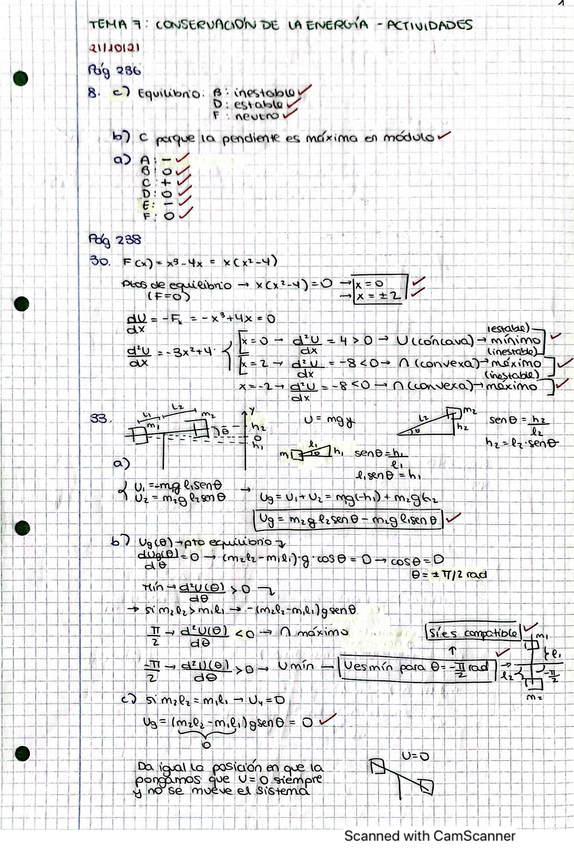 TEMA 7: CONSERVACIÓN DE LA ENERGÍA - ACTIVIDADES
21/10/21
Pág 236
8. c) Equilibrio. B: inestable ✓
D: estable ✓
F: neutro ✓
b) C porque la pendiente es máxima en módulo ✓
a) A: - ✓
B: 0 ✓
C: + ✓
D: 0 ✓
E: - ✓
F: 0 ✓
Pág 238
30. F(x) = x³-4x = x(x²-4)
ptos de equilibrio → x(x²-4)=0 → x=0 ✓
(F=0) → x=±2 ✓
dU/dx = -Fx = -x³+4x = 0
(estable)
d²U/dx = -3x²+4 { x=0 → d²U/dx = 4>0 → U (cóncava) → mínimo ✓
(inestable)
x=2 → d²U/dx = -8<0 → ∩ (convexa) → máximo ✓
(inestable)
x=-2 → d²U/dx = -8<0 → ∩ (convexa) → máximo ✓
33. l₁ l₂ m₁ m₂ θ y h₂ 0 h₁ U = mgy l₂ m₂ h₂ θ sen θ = h₂/l₂
m l₁ θ h₁ sen θ = h₁/l₁ h₂ = l₂·sen θ
l₁ sen θ = h₁
a)
{ U₁ = -m₁g l₁ sen θ
U₂ = m₂g l₂ sen θ → Ug = U₁+U₂ = m₁g(-h₁) + m₂g h₂
Ug = m₂g l₂ sen θ - m₁g l₁ sen θ ✓
b) Ug(θ) → pto equilibrio
dUg(θ)/dθ = 0 → (m₂l₂-m₁l₁)·g·cos θ = 0 → cos θ = 0
θ = ±π/2 rad
Mín → d²U(θ)/dθ > 0
→ si m₂l₂ > m₁l₁ → -(m₂l₂-m₁l₁)g sen θ
π/2 → d²U(θ)/dθ < 0 → ∩ máximo
Sí es compatible ✓
↑
-π/2 → d²U(θ)/dθ > 0 → U mín — U es mín para θ = -π/2 rad ✓ → m₁ l₁ l₂ -π/2 m₂
c) si m₂l₂ = m₁l₁ → Ug = 0
Ug = (m₂l₂ - m₁l₁) g sen θ = 0 ✓
0
Da igual la posición en que la
pongamos que U=0 siempre
y no se mueve el sistema
U=0
Scanned with CamScanner